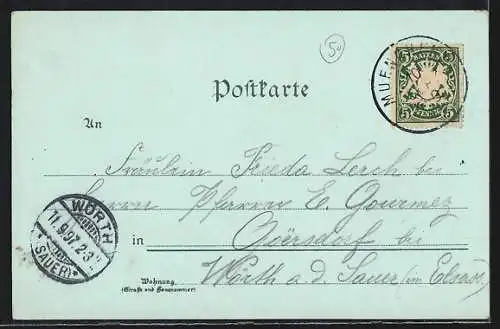 50
MUEN
BAYERN
5 5
5 5
PFENNIG
Postkarte
An
Fräulein Frieda Lerch bei
Herrn Pfarrer E. Gourmez
in Görsdorf bei
Wörth a. d. Sauer (im Elsass)
WÖRTH
11.9.97. 2-3 N
*(SAUER)*
Wohnung
(Straße und Hausnummer)